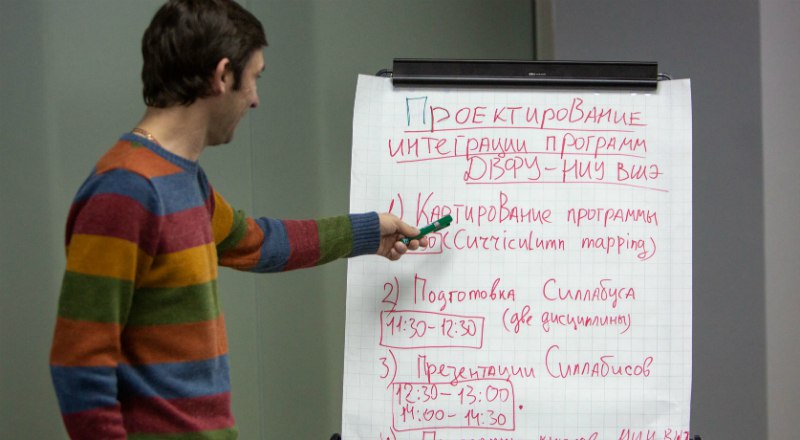 Проектирование
интеграции программ
ДВФУ-НИУ ВШЭ
1) Картирование программы
(Curriculum mapping)
2) Подготовка Силлабуса
11:30-12:30 (две дисциплины)
3) Презентации Силлабисов
12:30-13:00
14:00-14:30.
НИУ ВШ